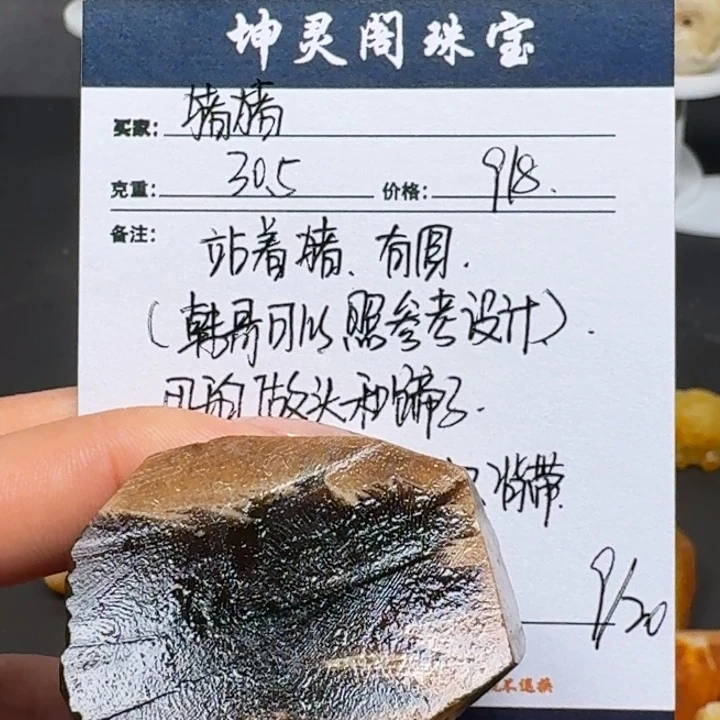 坤灵阁珠宝
买家: 猪猪
克重: 30.5 价格: 918.
备注: 站着猪、有圆.
(韩哥可以照参考设计).
做头和蹄子.
背带
9/20
不退换